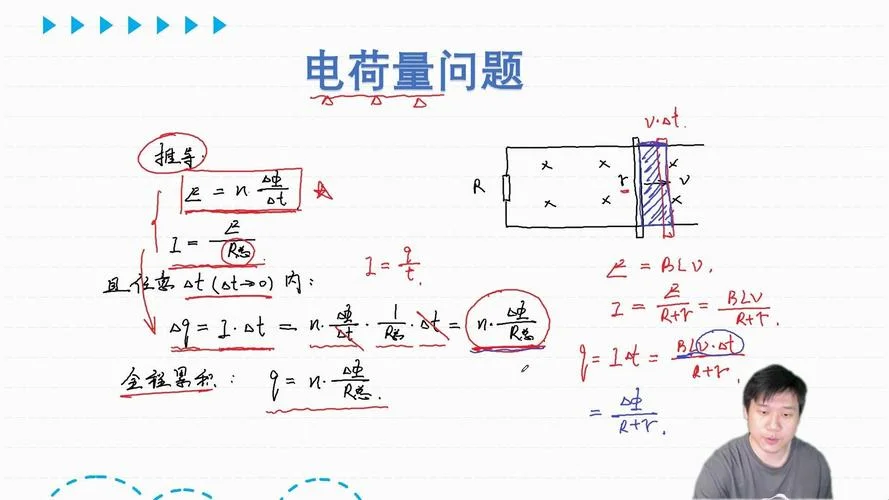 电荷量问题
推导:
E = n ΔΦ/Δt
I = E/R总
且任意 Δt (Δt→0) 内:
I = q/t.
Δq = I·Δt = n·ΔΦ/Δt·1/R总·Δt = n·ΔΦ/R总
全程累积: q = n·ΔΦ/R总.
v·Δt.
R
r
v
E = BLv.
I = E/R+r = BLv/R+r.
q = IΔt = BLv·Δt/R+r.
= ΔΦ/R+r.